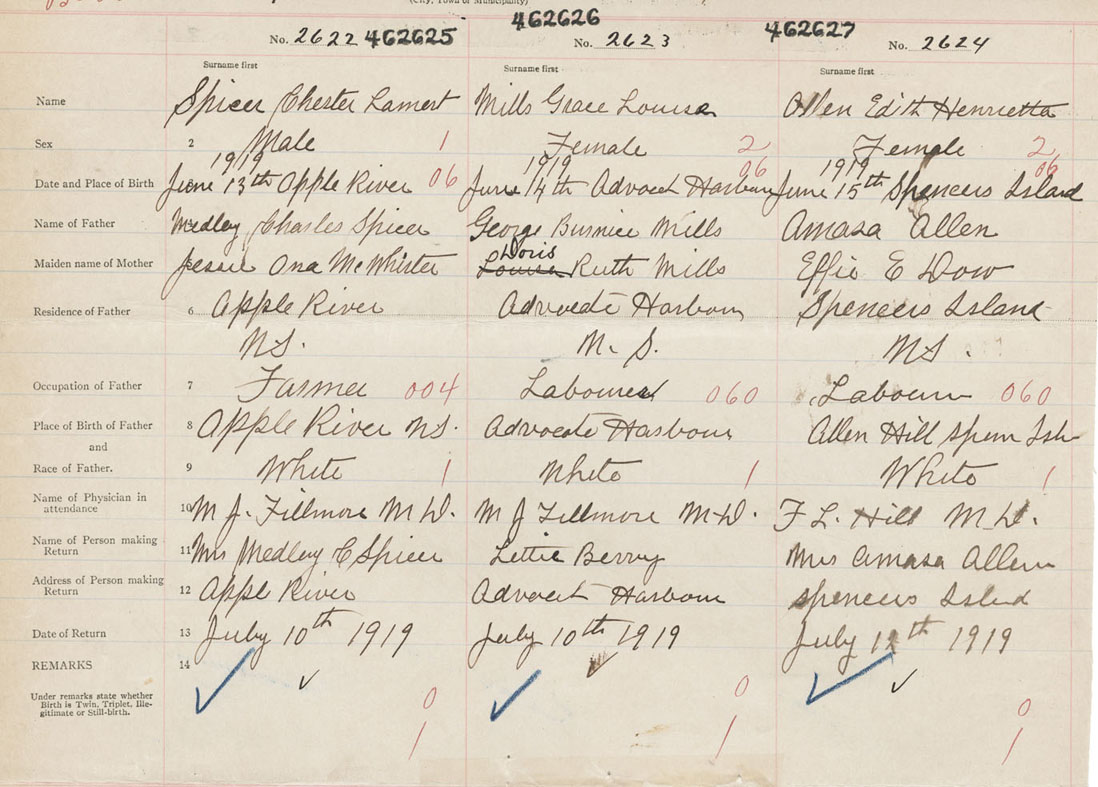 (City, Town or Municipality)
462626
No. 2622 462625 No. 2623 462627 No. 2624
Surname first Surname first Surname first
Name Spicer Chester Lamert Mills Grace Louisa Allen Edith Henrietta
Sex 2 Male 1 Female 2 Female 2
1919 1919 06 1919 06
Date and Place of Birth June 13th Apple River 06 June 14th Advocat Harbour June 15th Spencers Island
Name of Father Medley Charles Spicer George Burnice Mills Amasa Allen
Doris
Maiden name of Mother Jessie Ona McWhister Louisa Ruth Mills Effie E Dow
Residence of Father 6 Apple River Advocate Harbour Spencers Island
N.S. N.S. N.S.
Occupation of Father 7 Farmer 004 Labourer 060 Labourer 060
Place of Birth of Father 8 Apple River N.S. Advocate Harbour Allen Hill
and
Race of Father. 9 White 1 White 1 White 1
Name of Physician in
attendance 10 M J. Fillmore M.D. M J Fillmore M.D. F L. Hill M.D.
Name of Person making
Return 11 Mrs Medley C Spicer Lettie Berry Mrs Amasa Allen
Address of Person making
Return 12 Apple River Advocat Harbour Spencers Island
Date of Return 13 July 10th 1919 July 10th 1919 July 12th 1919
REMARKS 14
Under remarks state whether
Birth is Twin, Triplet, Ille-
gitimate or Still-birth.
0 0 0
1 1 1